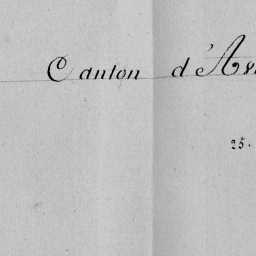 Canton d'Av
25.